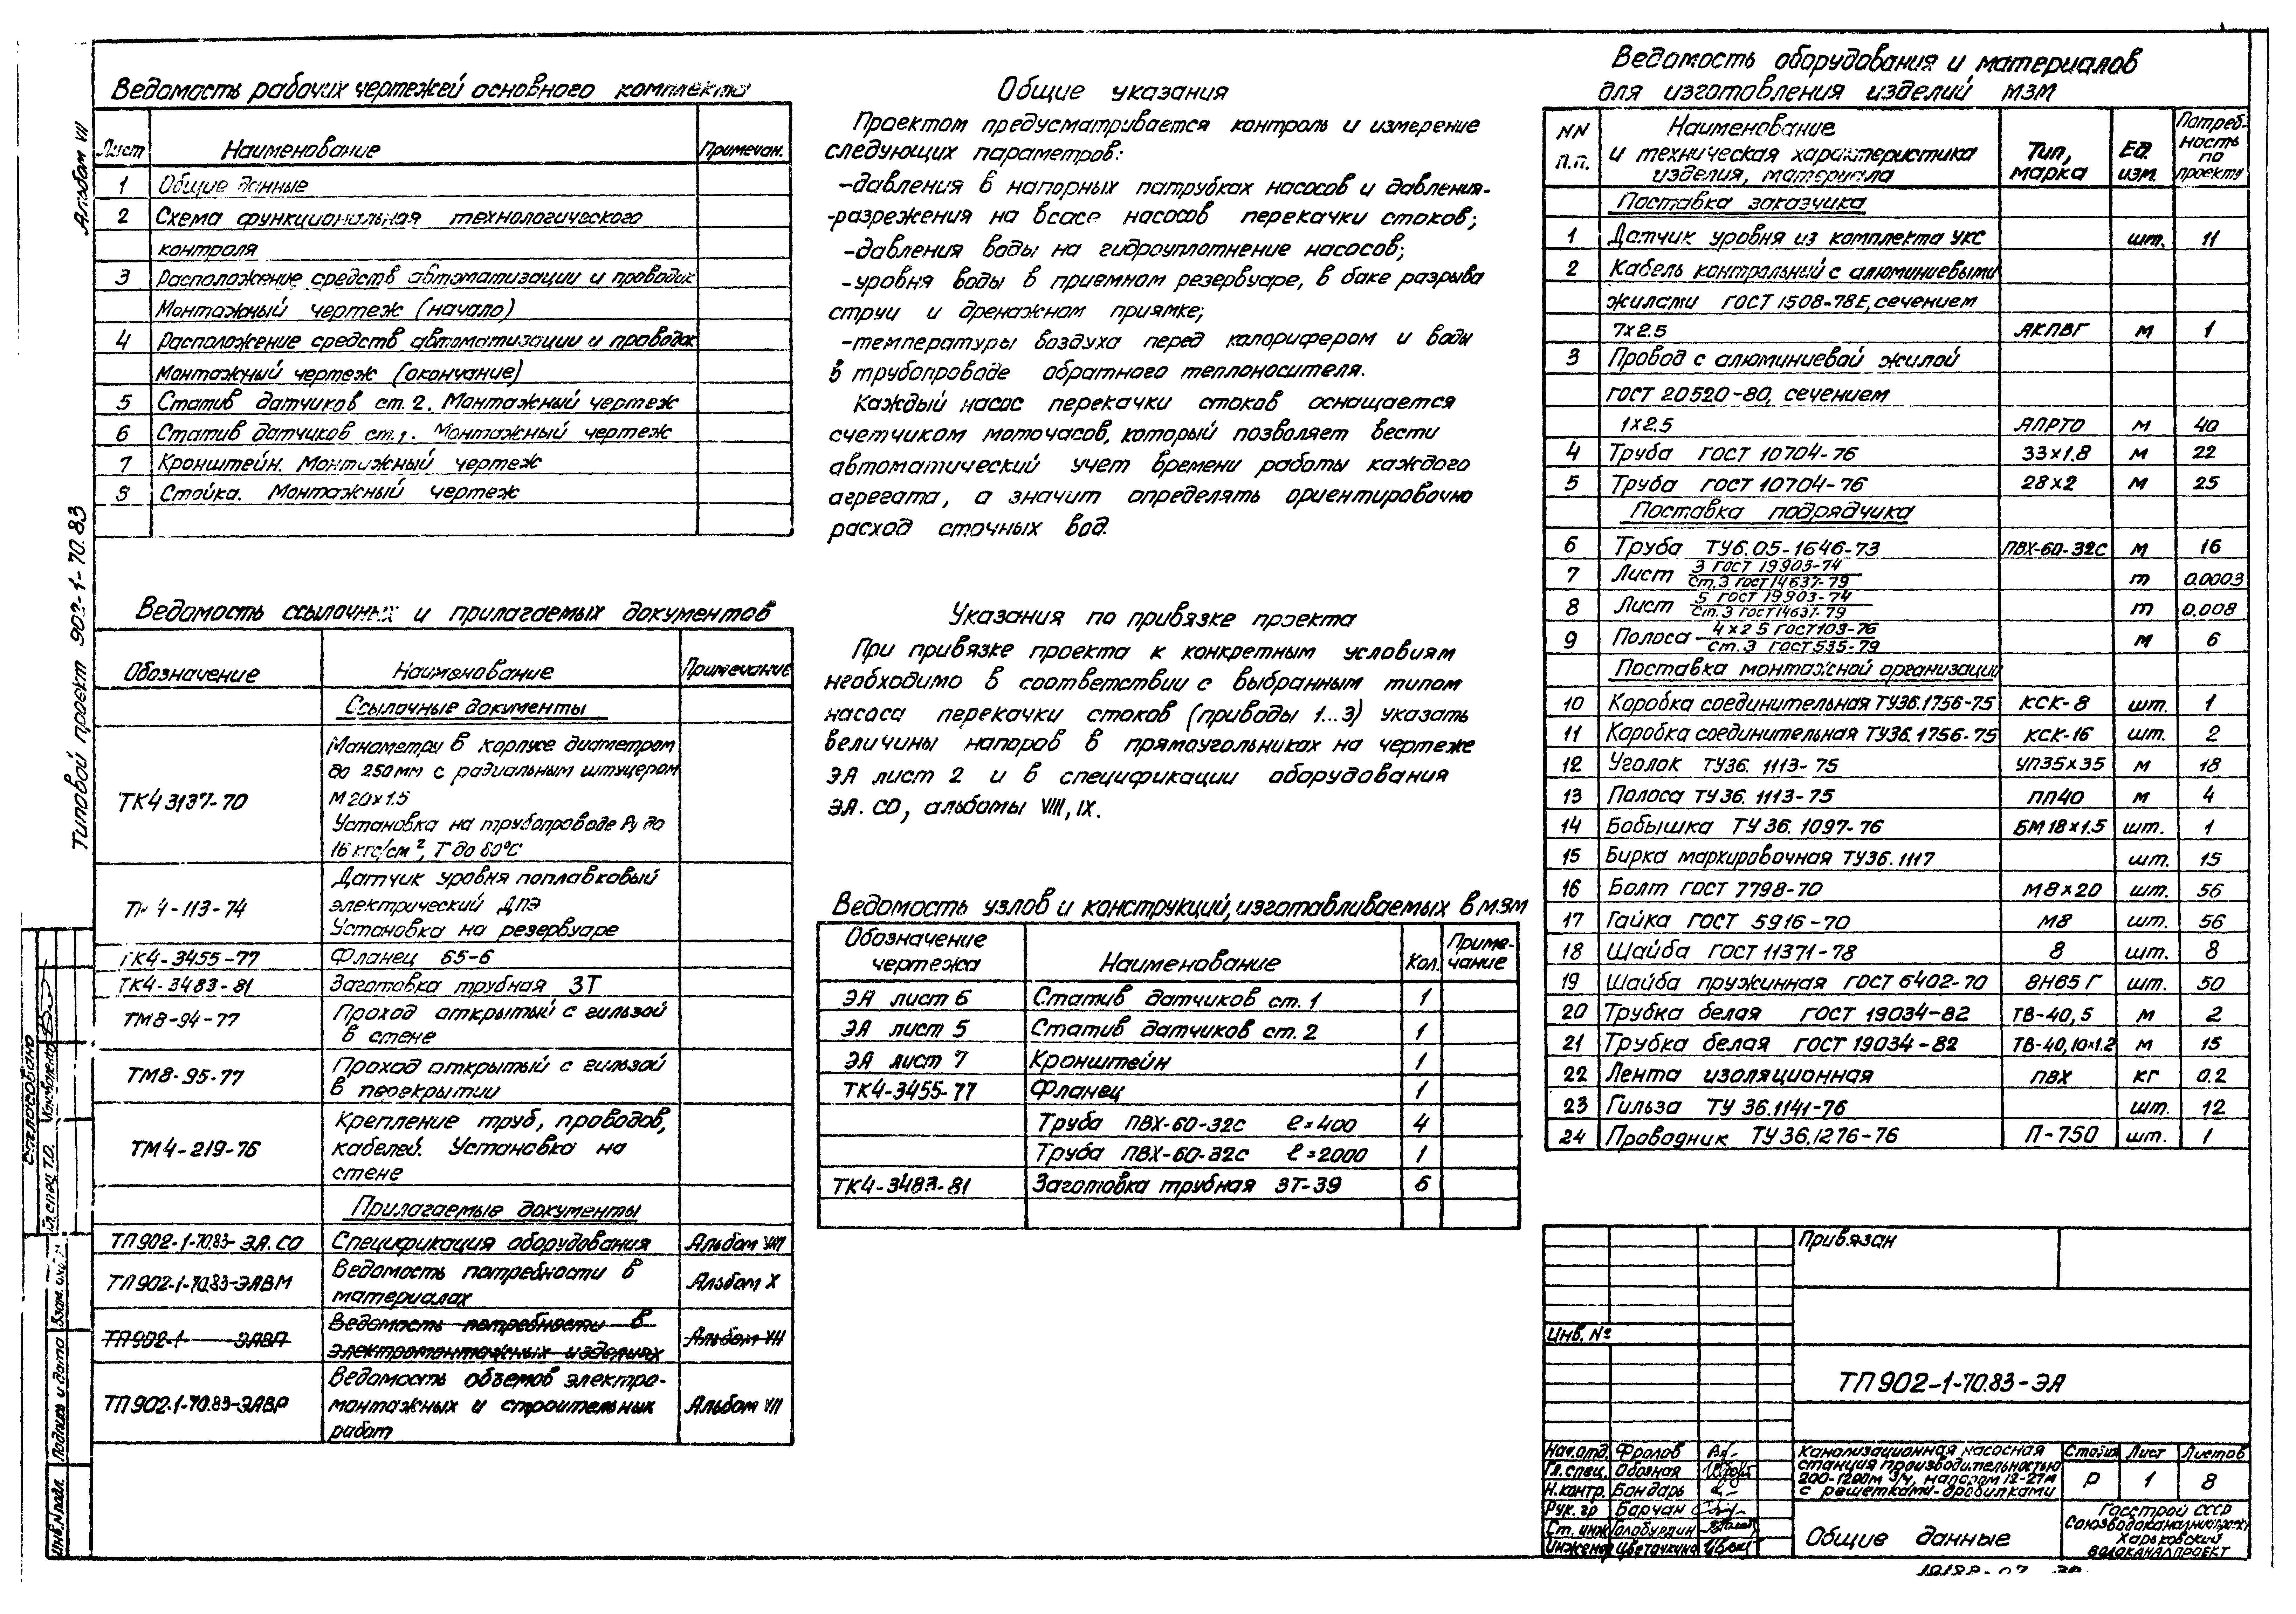 Альбом VII
Типовой проект 902-1-70.83
Ведомость рабочих чертежей основного комплекта
Лист Наименование Примечан.
1 Общие данные
2 Схема функциональная технологического
контроля
3 Расположение средств автоматизации и проводок
Монтажный чертеж (начало)
4 Расположение средств автоматизации и проводок
Монтажный чертеж (окончание)
5 Статив датчиков ст.2. Монтажный чертеж
6 Статив датчиков ст.1. Монтажный чертеж
7 Кронштейн. Монтажный чертеж
8 Стойка. Монтажный чертеж
Ведомость ссылочных и прилагаемых документов
Обозначение Наименование Примечание
Ссылочные документы
ТК4 3137-70 Манометры в корпусе диаметром
до 250мм с радиальным штуцером
М20х1.5
Установка на трубопроводе Ру до
16 кгс/см², Т до 80°С
4-113-74 Датчик уровня поплавковый
электрический ДПЭ
Установка на резервуаре
ТК4-3455-77 Фланец 65-6
ТК4-3483-81 Заготовка трубная ЗТ
ТМ8-94-77 Проход открытый с гильзой
в стене
ТМ8-95-77 Проход открытый с гильзой
в перекрытии
ТМ4-219-76 Крепление труб, проводов,
кабелей. Установка на
стене
Прилагаемые документы
ТП902-1-70.83-ЭА.СО Спецификация оборудования Альбом VIII
ТП902-1-70.83-ЭАВМ Ведомость потребности в
материалах Альбом X
ТП902-1 ЭАВП Ведомость потребности в
электромонтажных изделиях Альбом VII
ТП902-1-70.83-ЭАВР Ведомость объемов электро-
монтажных и строительных
работ Альбом VII
Общие указания
Проектом предусматривается контроль и измерение
следующих параметров:
-давления в напорных патрубках насосов и давления-
-разрежения на всасе насосов перекачки стоков;
-давления воды на гидроуплотнение насосов;
-уровня воды в приемном резервуаре, в баке разрыва
струи и дренажном приямке;
-температуры воздуха перед калорифером и воды
в трубопроводе обратного теплоносителя.
Каждый насос перекачки стоков оснащается
счетчиком моточасов, который позволяет вести
автоматический учет времени работы каждого
агрегата, а значит определять ориентировочно
расход сточных вод.
Указания по привязке проекта
При привязке проекта к конкретным условиям
необходимо в соответствии с выбранным типом
насоса перекачки стоков (приводы 1...3) указать
величины напоров в прямоугольниках на чертеже
ЭА лист 2 и в спецификации оборудования
ЭА.СО, альбомы VIII, IX.
Ведомость узлов и конструкций, изготавливаемых в МЗМ
Обозначение чертежа Наименование Кол. Приме-чание
ЭА лист 6 Статив датчиков ст.1 1
ЭА лист 5 Статив датчиков ст.2 1
ЭА лист 7 Кронштейн 1
ТК4-3455-77 Фланец 1
Труба ПВХ-60-32с ℓ=400 4
Труба ПВХ-60-32с ℓ=2000 1
ТК4-3483-81 Заготовка трубная ЗТ-39 6
Ведомость оборудования и материалов
для изготовления изделий МЗМ
NN п.п. Наименование и техническая характеристика изделия, материала Тип, марка Ед. изм. Потреб-ность по проекту
Поставка заказчика
1 Датчик уровня из комплекта УКС шт. 11
2 Кабель контрольный с алюминиевыми
жилами ГОСТ 1508-78Е, сечением
7х2.5 АКПВГ м 1
3 Провод с алюминиевой жилой
ГОСТ 20520-80, сечением
1х2.5 АПРТО м 40
4 Труба ГОСТ 10704-76 33х1.8 м 22
5 Труба ГОСТ 10704-76 28х2 м 25
Поставка подрядчика
6 Труба ТУ6.05-1646-73 ПВХ-60-32с м 16
7 Лист 3 ГОСТ 19903-74 / Ст.3 ГОСТ 14637-79 т 0.0003
8 Лист 5 ГОСТ 19903-74 / Ст.3 ГОСТ 14637-79 т 0.008
9 Полоса 4х25 ГОСТ 103-76 / Ст.3 ГОСТ 535-79 м 6
Поставка монтажной организации
10 Коробка соединительная ТУ36.1756-75 КСК-8 шт. 1
11 Коробка соединительная ТУ36.1756-75 КСК-16 шт. 2
12 Уголок ТУ36. 1113-75 УП35х35 м 18
13 Полоса ТУ36. 1113-75 ПП40 м 4
14 Бобышка ТУ36. 1097-76 БМ18х1.5 шт. 1
15 Бирка маркировочная ТУ36.1117 шт. 15
16 Болт ГОСТ 7798-70 М8х20 шт. 56
17 Гайка ГОСТ 5916-70 М8 шт. 56
18 Шайба ГОСТ 11371-78 8 шт. 8
19 Шайба пружинная ГОСТ 6402-70 8Н65Г шт. 50
20 Трубка белая ГОСТ 19034-82 ТВ-40,5 м 2
21 Трубка белая ГОСТ 19034-82 ТВ-40,10х1.2 м 15
22 Лента изоляционная ПВХ кг 0.2
23 Гильза ТУ 36.1141-76 шт. 12
24 Проводник ТУ36.1276-76 П-750 шт. 1
Привязан
Инв. №
ТП902-1-70.83-ЭА
Нач.отд. Фролов
Гл.спец. Обозная
Н.контр. Бондарь
Рук.гр Барчан
Ст. инж Голобурдин
Инженер Цветочкина
Канализационная насосная
станция производительностью
200-1200м³/ч, напором 12-27м
с решетками-дробилками
Стадия Лист Листов
Р 1 8
Общие данные
Госстрой СССР
Союзводоканалниипроект
Харьковский
ВОДОКАНАЛПРОЕКТ
Согласовано
Гл.спец Т.О.
Взам. инв.
Подпись и дата
Инв.N подл.